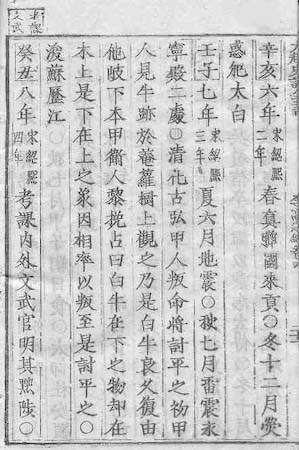 辛亥六年宋紹熙二年春真臘國來貢〇冬十二月熒
惑犯太白
壬子七年宋紹熙三年夏六月地震〇秋七月雷震永
寧殿二處〇清化古弘甲人叛命將討平之初甲
人見牛跡於菴蘿樹上觀之乃是白牛良久復由
他岐下本甲衛人黎挽占曰白牛在下之物却在
木上是下在上之象因相率以叛至是討平之〇
浚蘇歷江
考課文武
癸丑八年宋紹熙四年考課内外文武官明其黜陟〇